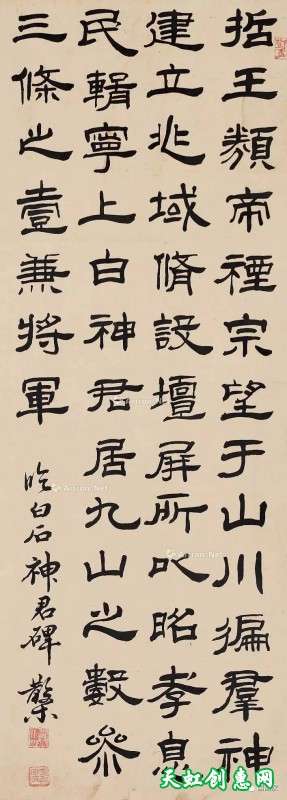 哲王類帝禋宗望于山川徧羣神
建立兆域脩設壇屏所㠯昭孝息
民輯寧上白神君居九山之數參
三條之壹兼將軍
臨白石神君碑
Artron.Net
天虹创惠网